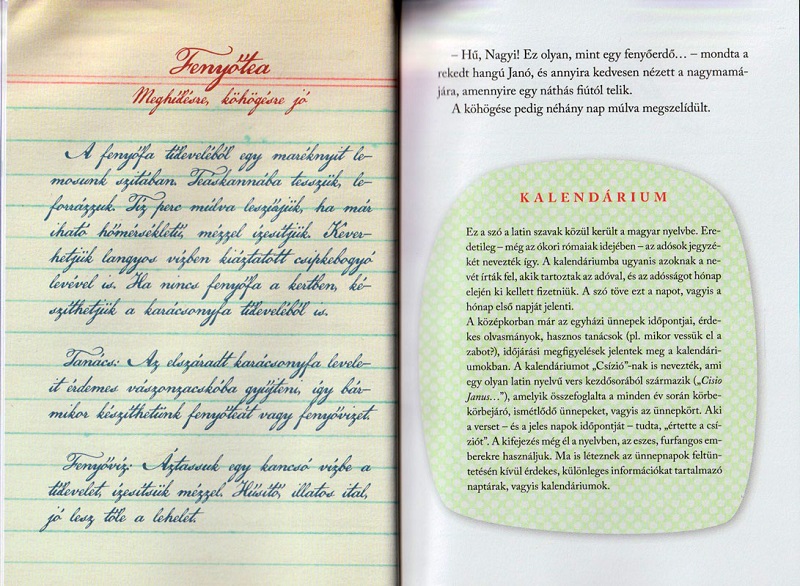 Fenyőtea
Meghűlésre, köhögésre jó
A fenyőfa tűleveléből egy maréknyit le-
mosunk szitában. Teáskannába tesszük, le-
forrázzuk. Tíz perc múlva leszűrjük, ha már
iható hőmérsékletű, mézzel ízesítjük. Kever-
hetjük langyos vízben kiáztatott csipkebogyó
levével is. Ha nincs fenyőfa a kertben, ké-
szíthetjük a karácsonyfa tűleveléből is.
Tanács: Az elszáradt karácsonyfa levele-
it érdemes vászonzacskóba gyűjteni, így bár-
mikor készíthetünk fenyőteát vagy fenyővizet.
Fenyővíz: Áztassuk egy kancsó vízbe a
tűlevelet, ízesítsük mézzel. Hűsítő, illatos ital,
jó lesz tőle a lehelet.
– Hű, Nagyi! Ez olyan, mint egy fenyőerdő… – mondta a
rekedt hangú Janó, és annyira kedvesen nézett a nagymamá-
jára, amennyire egy náthás fiútól telik.
A köhögése pedig néhány nap múlva megszelídült.
KALENDÁRIUM
Ez a szó a latin szavak közül került a magyar nyelvbe. Ere-
detileg – még az ókori rómaiak idejében – az adósok jegyzé-
két nevezték így. A kalendáriumba ugyanis azoknak a ne-
vét írták fel, akik tartoztak az adóval, és az adósságot hónap
elején ki kellett fizetniük. A szó töve ezt a napot, vagyis a
hónap első napját jelenti.
A középkorban már az egyházi ünnepek időpontjai, érde-
kes olvasmányok, hasznos tanácsok (pl. mikor vessük el a
zabot?), időjárási megfigyelések jelentek meg a kalendári-
umokban. A kalendáriumot „Csízió”-nak is nevezték, ami
egy olyan latin nyelvű vers kezdősorából származik („Cisio
Janus…”), amelyik összefoglalta a minden év során körbe-
körbejáró, ismétlődő ünnepeket, vagyis az ünnepkört. Aki
a verset – és a jeles napok időpontját – tudta, „értette a csí-
ziót”. A kifejezés még él a nyelvben, az eszes, furfangos em-
berekre használjuk. Ma is léteznek az ünnepnapok feltün-
tetésén kívül érdekes, különleges információkat tartalmazó
naptárak, vagyis kalendáriumok.